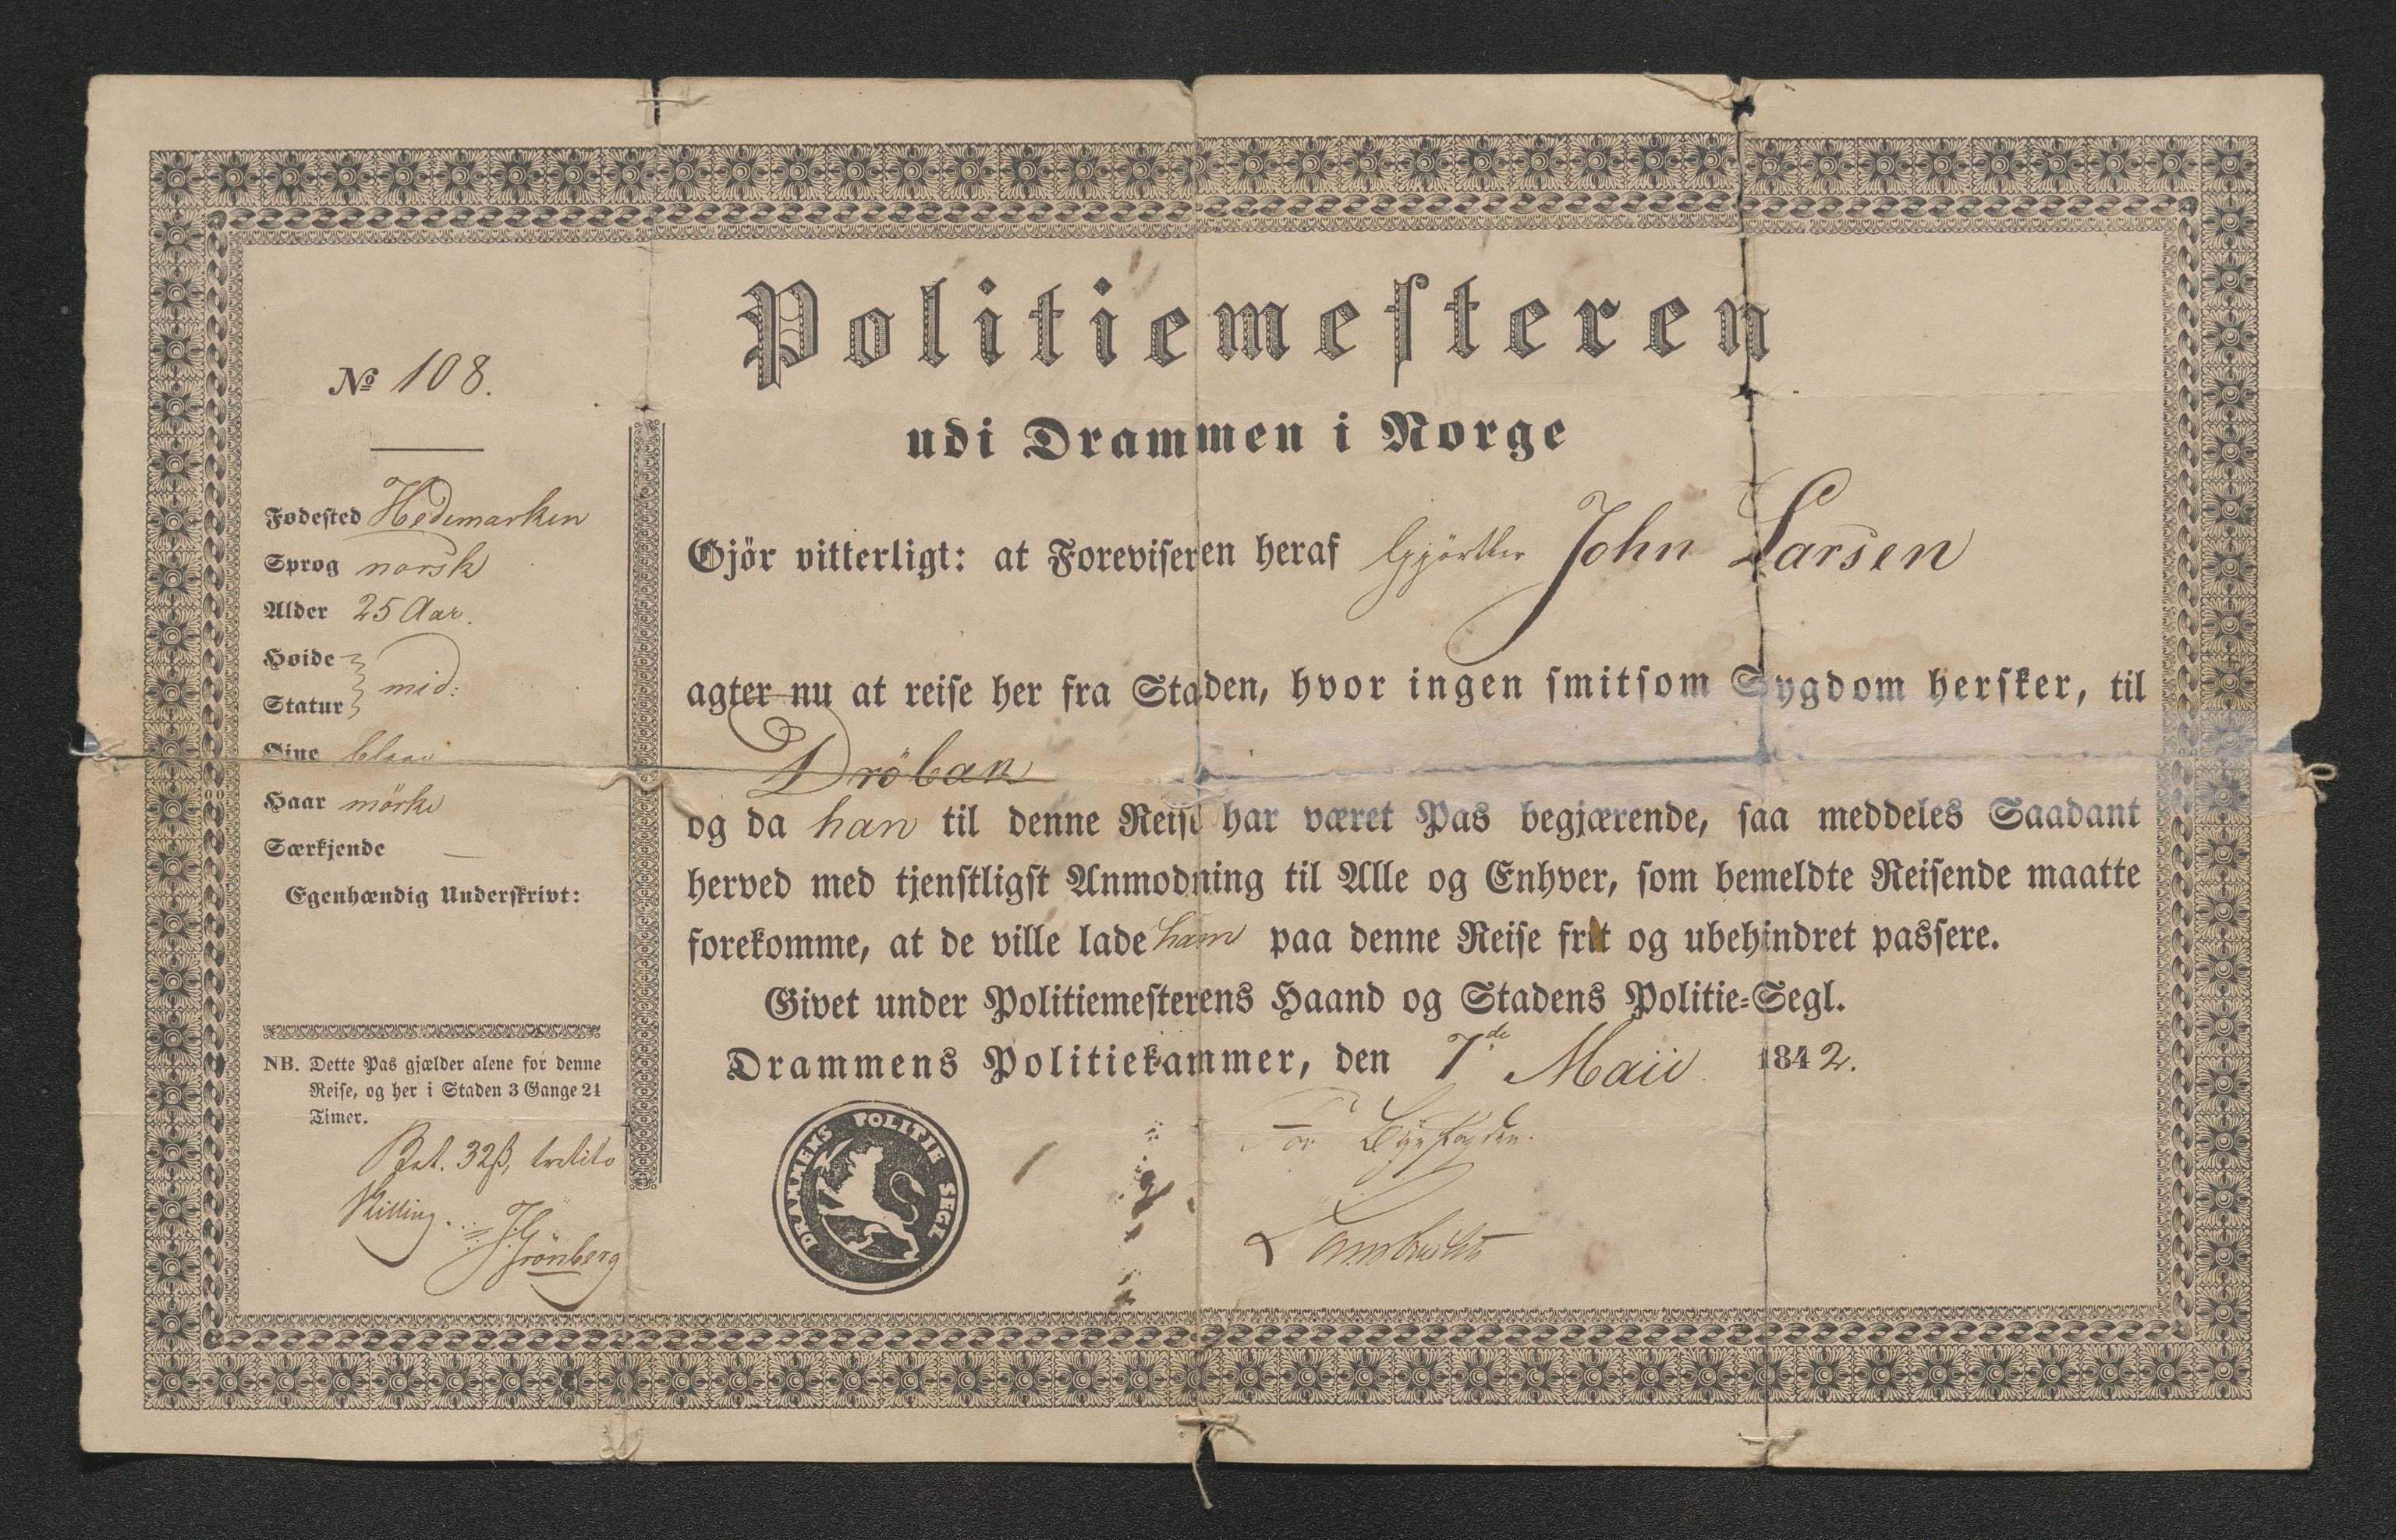 Politiemesteren
udi Drammen i Norge
№ 108.
Fødested Hedemarken
Sprog norsk
Alder 25 Aar.
Høide
Statur } mid:
Øine blaae
Haar mörke
Særkjende —
Egenhændig Underskrivt:
NB. Dette Pas gjælder alene for denne
Reise, og her i Staden 3 Gange 24
Timer.
Bet. 32ß, tretito
Skilling.
Grönberg
Gjör vitterligt: at Foreviseren heraf Gjörtler John Larsen
agter nu at reise her fra Staden, hvor ingen smitsom Sygdom hersker, til
Dröbak
og da han til denne Reise har været Pas begjærende, saa meddeles Saadant
herved med tjenstligst Anmodning til Alle og Enhver, som bemeldte Reisende maatte
forekomme, at de ville lade ham paa denne Reise frit og ubehindret passere.
Givet under Politiemesterens Haand og Stadens Politie=Segl.
Drammens Politiekammer, den 7de Maii 1842.
For Byefogden.
DRAMMENS POLITIE SEGL